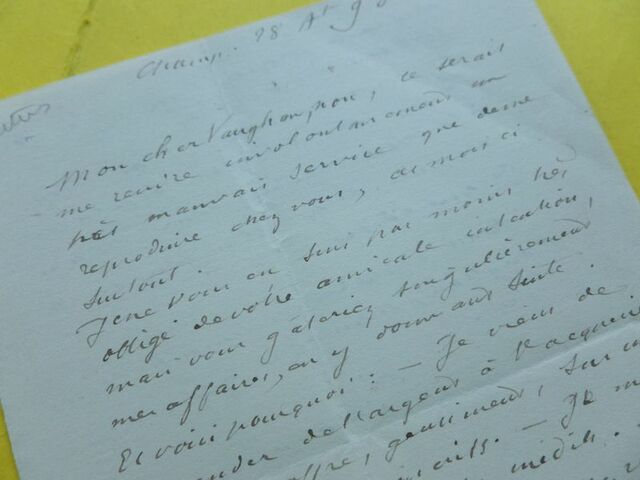 Champ. 28 At 90
Mon cher Vaughan, non, ce serait
me rendre involontairement un
très mauvais service que de me
reproduire chez vous, ce mois ci
surtout.
Je ne vous en suis pas moins très
obligé de votre amicale intention,
mais vous gâteriez singulièrement
mes affaires, en y donnant suite.
Et voici pourquoi. — Je viens de
de l'argent à
gentiment, sur
— Je